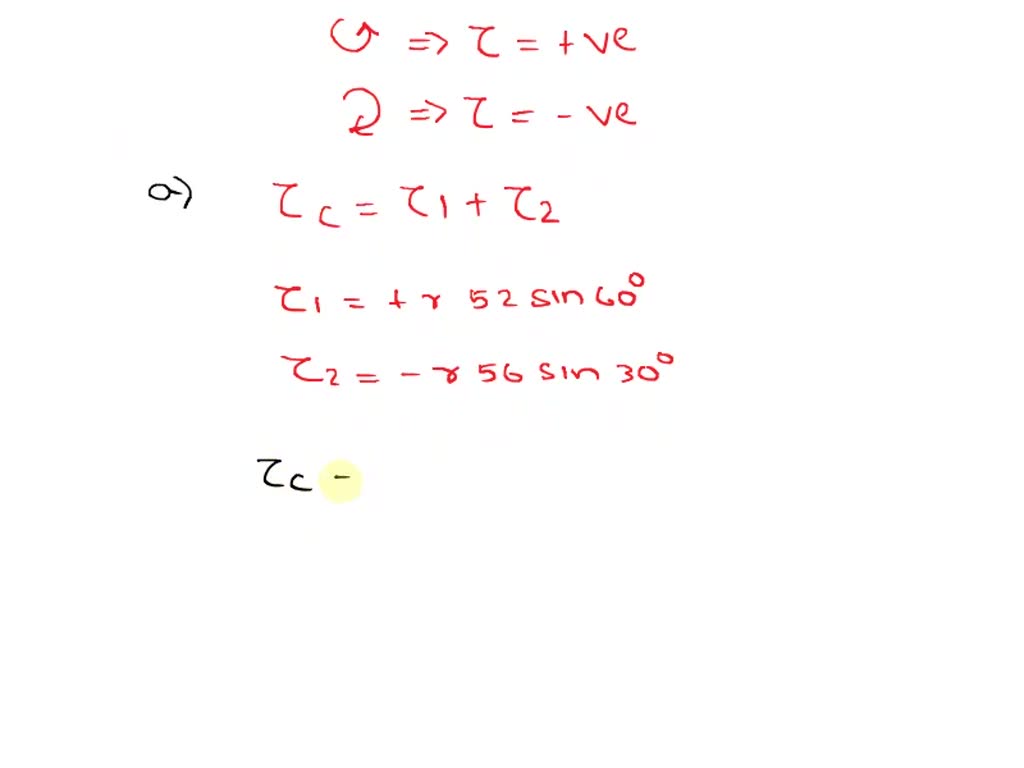 ↺ => τ = +ve
↻ => τ = - ve
a) τc = τ1 + τ2
τ1 = + r 52 sin 60°
τ2 = - r 56 sin 30°
τc -